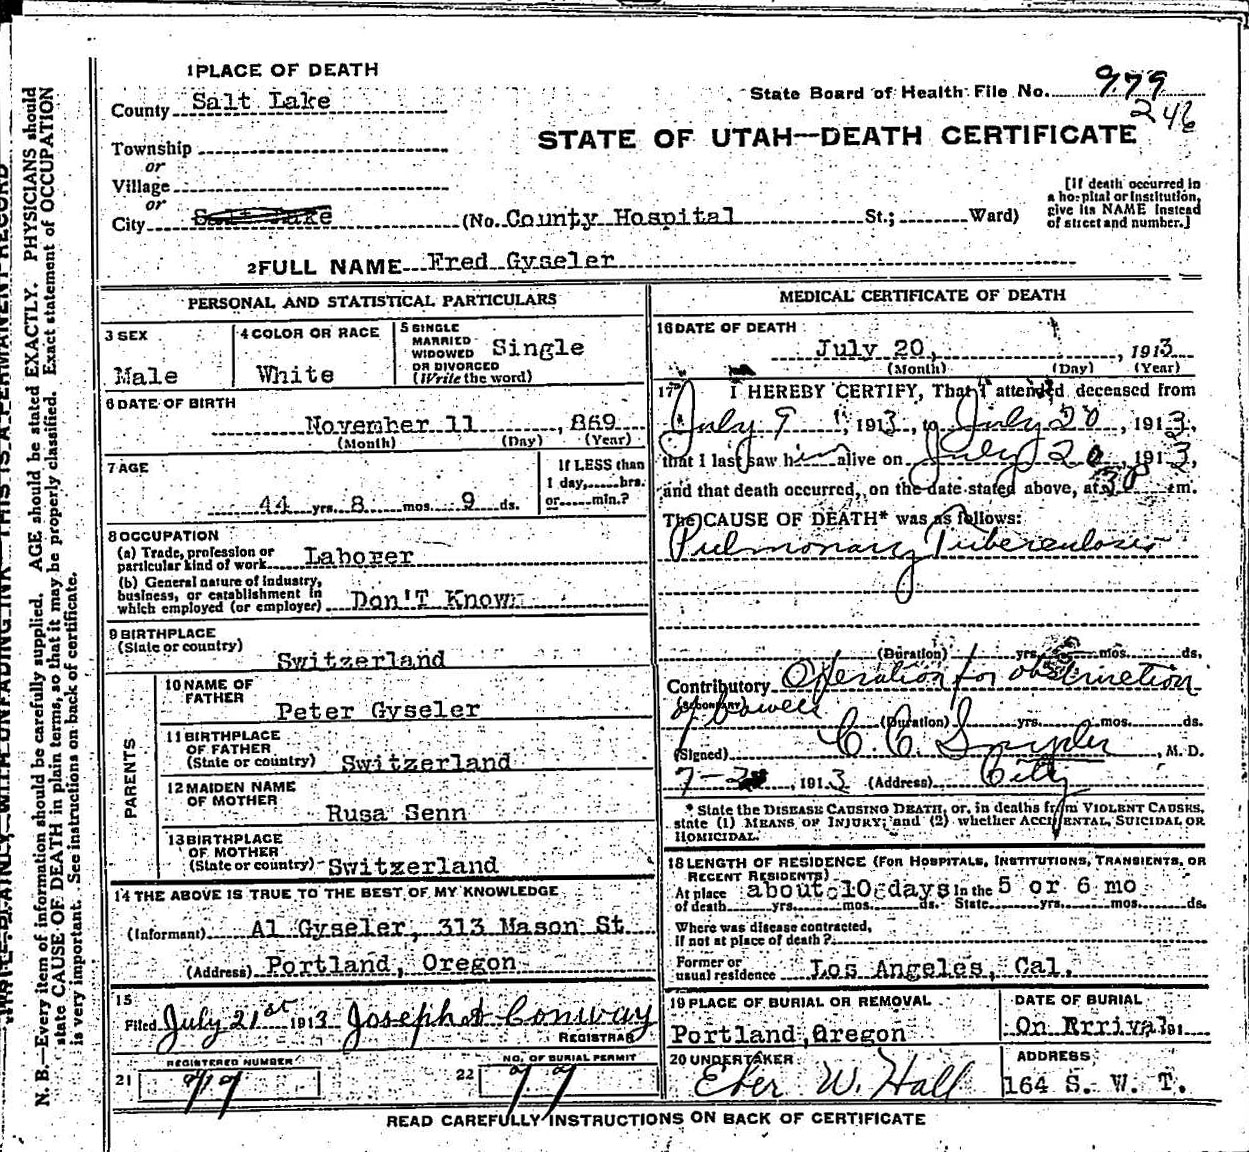 1 PLACE OF DEATH
County Salt Lake
State Board of Health File No. 979
246
STATE OF UTAH—DEATH CERTIFICATE
Township
or
Village
or
City Salt Lake (No. County Hospital St.; Ward)
[If death occurred in a hospital or institution, give its NAME instead of street and number.]
2 FULL NAME Fred Gyseler
PERSONAL AND STATISTICAL PARTICULARS
3 SEX
Male
4 COLOR OR RACE
White
5 SINGLE MARRIED WIDOWED OR DIVORCED (Write the word) Single
6 DATE OF BIRTH
November 11, 869
(Month) (Day) (Year)
7 AGE
44 yrs. 8 mos. 9 ds.
If LESS than 1 day, hrs. or min.?
8 OCCUPATION
(a) Trade, profession or particular kind of work Laborer
(b) General nature of industry, business, or establishment in which employed (or employer) Don'T Known
9 BIRTHPLACE
(State or country)
Switzerland
PARENTS
10 NAME OF FATHER
Peter Gyseler
11 BIRTHPLACE OF FATHER
(State or country) Switzerland
12 MAIDEN NAME OF MOTHER
Rusa Senn
13 BIRTHPLACE OF MOTHER
(State or country) Switzerland
14 THE ABOVE IS TRUE TO THE BEST OF MY KNOWLEDGE
(Informant) Al Gyseler, 313 Mason St
(Address) Portland, Oregon
15
Filed July 21st 1913 Joseph Conway
REGISTRAR
REGISTERED NUMBER
21
NO. OF BURIAL PERMIT
22
MEDICAL CERTIFICATE OF DEATH
16 DATE OF DEATH
July 20, , 1913
(Month) (Day) (Year)
17 I HEREBY CERTIFY, That I attended deceased from
July 9, 1913, to July 20, 1913,
that I last saw him alive on July 20, 1913,
and that death occurred, on the date stated above, at m.
The CAUSE OF DEATH* was as follows:
Pulmonary Tuberculosis
(Duration) yrs. mos. ds.
Contributory Operation for obstruction
(SECONDARY)
of bowel (Duration) yrs. mos. ds.
(Signed) C. C. Snyder, M. D.
7-2 , 1913 (Address) City
* State the DISEASE CAUSING DEATH, or, in deaths from VIOLENT CAUSES, state (1) MEANS OF INJURY; and (2) whether ACCIDENTAL, SUICIDAL OR HOMICIDAL.
18 LENGTH OF RESIDENCE (FOR HOSPITALS, INSTITUTIONS, TRANSIENTS, OR RECENT RESIDENTS)
At place of death about 10 days yrs. mos. ds. In the State 5 or 6 mo yrs. mos. ds.
Where was disease contracted,
if not at place of death?
Former or usual residence Los Angeles, Cal.
19 PLACE OF BURIAL OR REMOVAL
Portland, Oregon
DATE OF BURIAL
On Rrrival 191
20 UNDERTAKER
Eber W. Hall
ADDRESS
164 S. W. T.
READ CAREFULLY INSTRUCTIONS ON BACK OF CERTIFICATE
WRITE PLAINLY WITH UNFADING INK—THIS IS A PERMANENT RECORD
N. B.—Every item of information should be carefully supplied. AGE should be stated EXACTLY. PHYSICIANS should
state CAUSE OF DEATH in plain terms, so that it may be properly classified. Exact statement of OCCUPATION
is very important. See instructions on back of certificate.